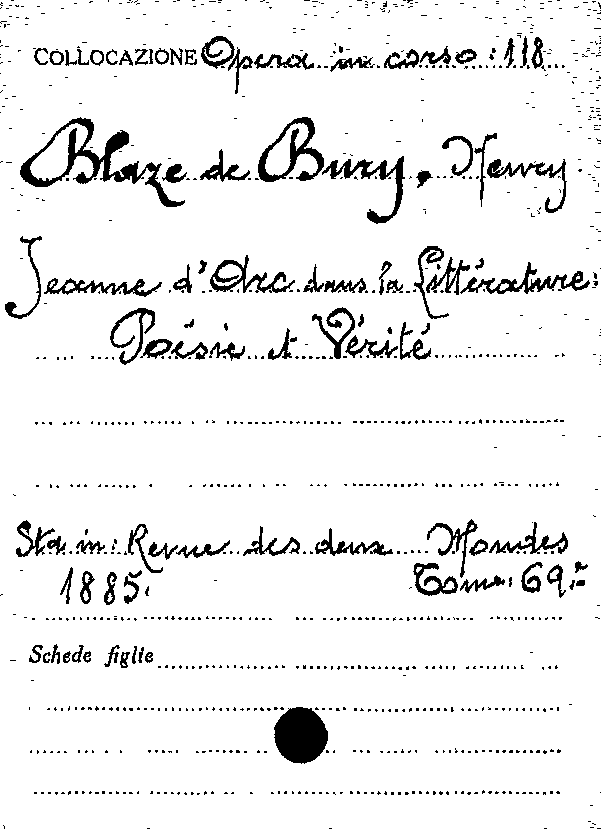 COLLOCAZIONE Opera in corso: 118
Blaze de Bury, Henry
Jeanne d'Arc dans la Littérature:
Poésie et Vérité
Sta in: Revue des deux Mondes
1885. Tome: 69.º
Schede figlie